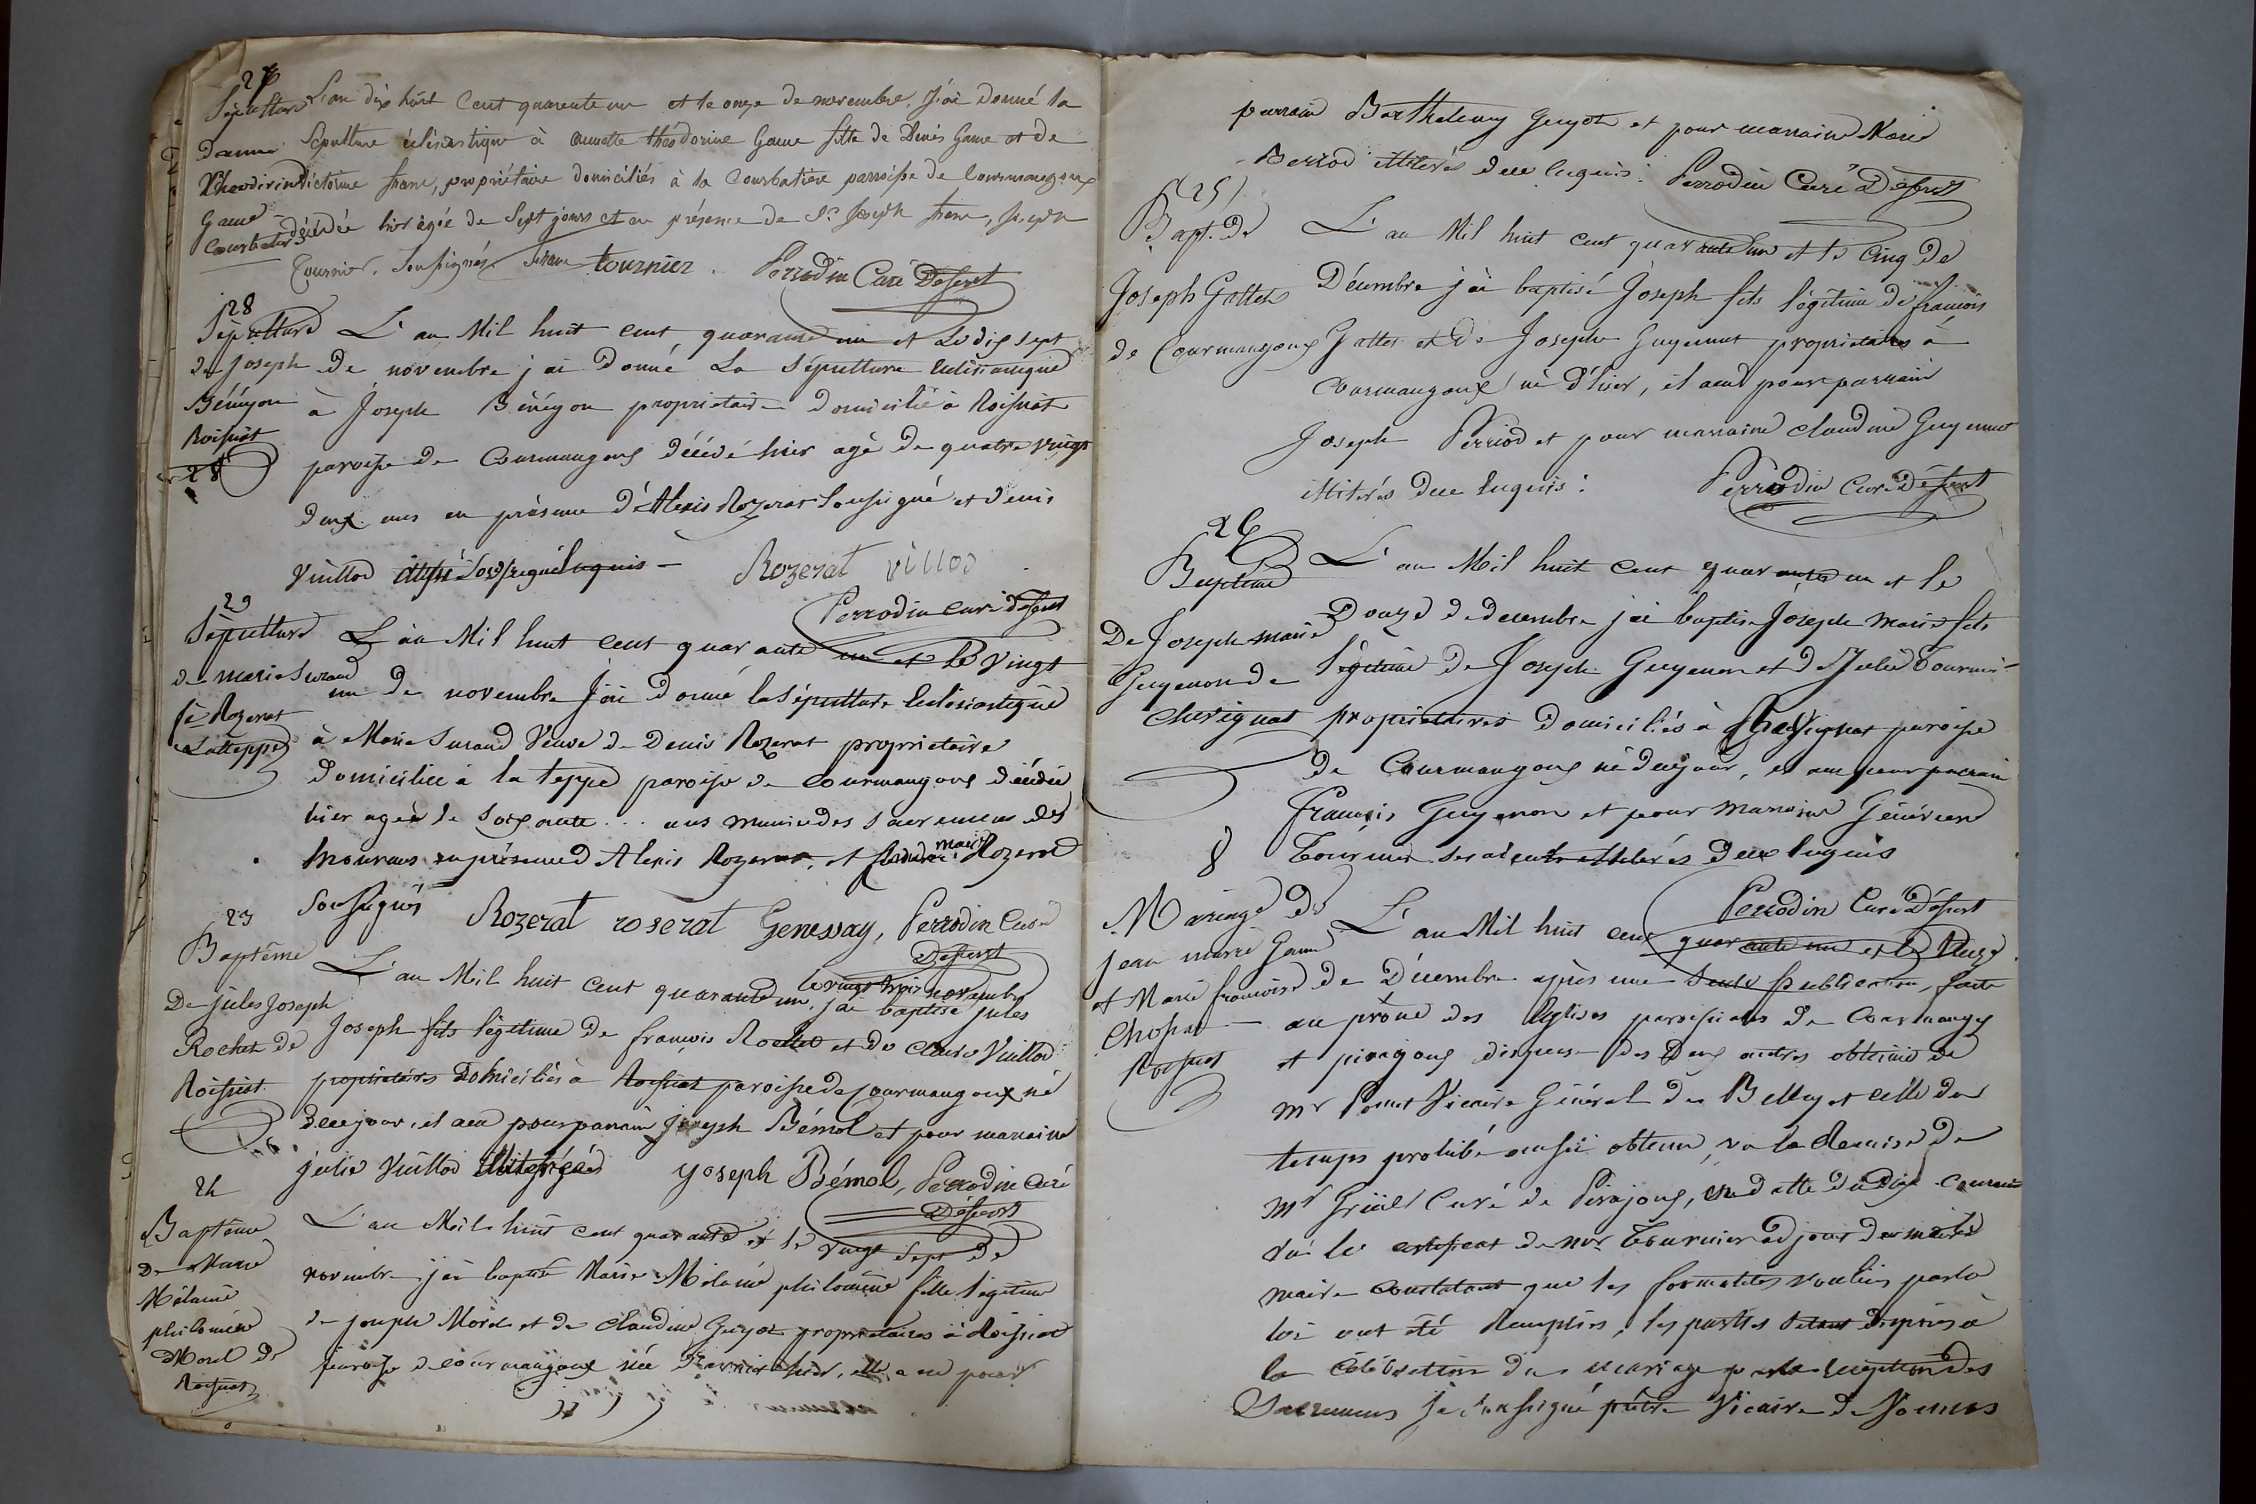 27
Sépulture
d'anne
Théodorine
Game
Courbatière
L'an dix huit Cent quarante un et le onze de novembre, J'ai donné la
Sépulture éclésiastique à annette théodorine Game fille de Denis Game et de
Victorine frane, propriétaire domiciliés à la Courbatière parroisse de Courmangoux
décédée hier agée de Sept jours et en présence de Sr Joseph frane, Joseph
Tournier, Soussignés frane tournier. Perrodin Curé Desservt
28
Sépulture
de Joseph
Bénégon
Roissiat
28
L'an Mil huit cent, quarante un et Le dix sept
De novembre j'ai Donné La Sépulture Eclésiastique
à Joseph Bénégon propriétaire Domicilié à Roissiat
paroisse De Courmangoux Décédé hier agé De quatre vingt
Deux ans en présence D'Alexis Rozerat Soussigné et Denis
Vuillod aussi Soussigné requis — Rozerat villod
Perrodin curé desservt
29
Sépulture
de marie Surand
fe Rozerat
La teppe
L'an Mil huit cent quarante un et Le Vingt
un De novembre J'ai Donné la Sépulture Eclésiastique
à Marie Surand Veuve De Denis Rozerat propriétaire
Domiciliée à la teppe paroisse de Courmangoux décédée
hier agée de Soixante ... ans munie des Sacremens des
mourans en présence d'Alexis Rozerat, et marie Rozerat
Soussignés Rozerat rozerat Genessay, Perrodin Curé
Desservt
23
Baptême
De jules Joseph
Rochet de
Roissiat
L'an Mil huit Cent quarante un, le vingt trois novembre j'ai baptisé jules
Joseph fils légitime de françois Rochet et de Claire Vuillod
propriétaires Domiciliés à Roissiat paroisse de Courmangoux né
de ce jour, il a eu pour parrain joseph Bémol et pour marraine
julie Vuillod illitérée yoseph Bémol, Perrodin Curé
Desservt
24
Baptême
De Marie
Mélanie
philomène
Morel De
Roissiat
L'an Mil huit cent quarante et le vingt Sept De
novembre j'ai baptisé Marie Mélanie philomène fille légitime
de joseph Morel et de Claudine Guyot propriétaires à Roissiat
paroisse de Courmangoux née hier, elle a eu pour
parrain Barthelemy Guyot et pour marraine Marie
Berrod illitérés de ce requis. Perrodin Curé Desservt
25
Bapt. De
Joseph Gallet
de Courmangoux
L'an Mil huit cent quarante un et le Cinq De
Décembre j'ai baptisé Joseph fils légitime de françois
Gallet et De Josephe Guyennot propriétaires à
Courmangoux né d'hier, il a eu pour parrain
Joseph Perriod et pour marraine claudine Guyennot
illitérés De ce requis: Perrodin Curé Desservt
26
Baptême
De Joseph marie
Guyenon de
Chevignat
L'an Mil huit Cent quarante un et le
Douze de decembre j'ai baptisé Joseph marie fils
légitime de Joseph Guyenon et De Julie Tournier
propriétaires Domiciliés à Chevignat paroisse
De Courmangoux né de ce jour, il a eu pour parrain
François Guyenon et pour marraine
Tournier illitérés De ce requis
Perrodin Curé Desservt
8
Mariage De
jean marie Game
et Marie françoise
Chossat
Roissiat
L'an Mil huit cent quarante un et le
De Décembre après une Seule publication, faite
au prône des Eglises paroissiales De Courmangoux
et pirajoux dispense des Deux autres obtenue de
Mr Vicaire Général De Belley et celle du
temps prohibé aussi obtenue, vu la Remise De
Mr Curé de Pirajoux, en datte du Dix Courant
Vu le certificat de mr Tournier adjoint
maire Constatant que les formalités voulues par la
loi ont été Remplies, les parties
la Célébration du mariage par la reception des
Sacremens je Soussigné prêtre Vicaire de